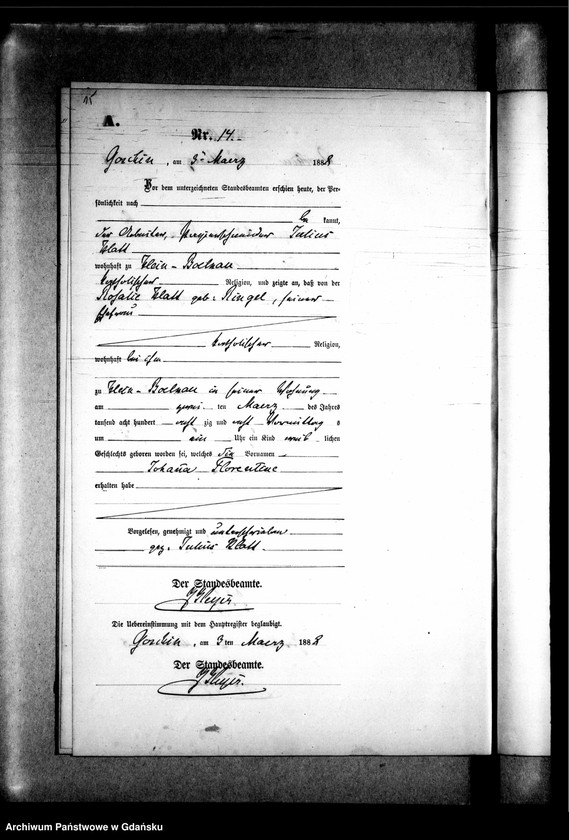 15
A.
Nr. 14.
Goschin, am 3ten Maerz 1888
Vor dem unterzeichneten Standesbeamten erschien heute, der Per-
sönlichkeit nach
be kannt,
der Arbeiter, Julius
Klatt
wohnhaft zu Klein-Boelkau
katholischer Religion, und zeigte an, daß von der
Rosalie Klatt geb: Ringel, seiner
Ehefrau
katholischer Religion,
wohnhaft bei ihm
zu Klein-Boelkau in seiner Wohnung
am zwei ten Maerz des Jahres
tausend acht hundert acht zig und acht Vormittag s
um ein Uhr ein Kind weib lichen
Geschlechts geboren worden sei, welches die Vornamen
Johanna Florentine
erhalten habe
Vorgelesen, genehmigt und unterschrieben
gez. Julius Klatt
Der Standesbeamte.
Die Uebereinstimmung mit dem Hauptregister beglaubigt.
Goschin, am 3 ten Maerz 1888
Der Standesbeamte.
Archiwum Państwowe w Gdańsku